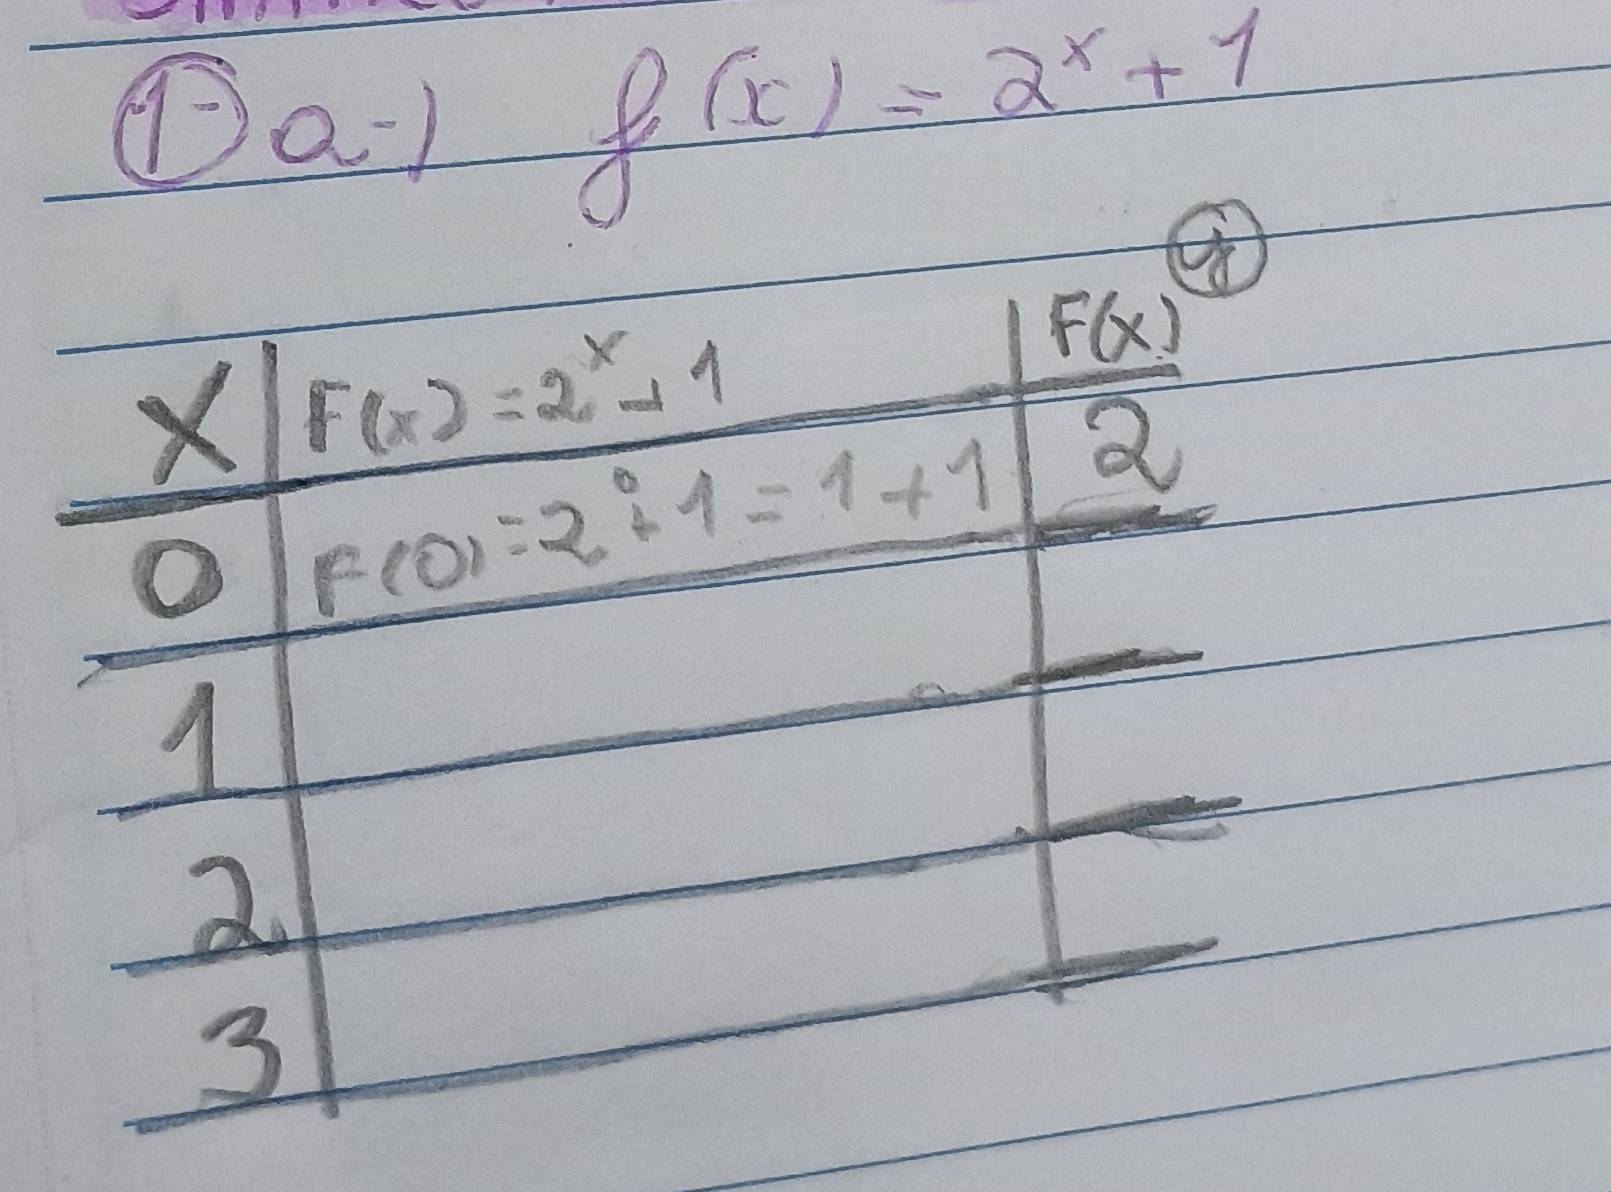 ①- a-) f(x) = 2ˣ + 1
X F(x) = 2ˣ + 1 F(x) ⓨ
0 F(0) = 2⁰ + 1 = 1 + 1 2
1
2
3